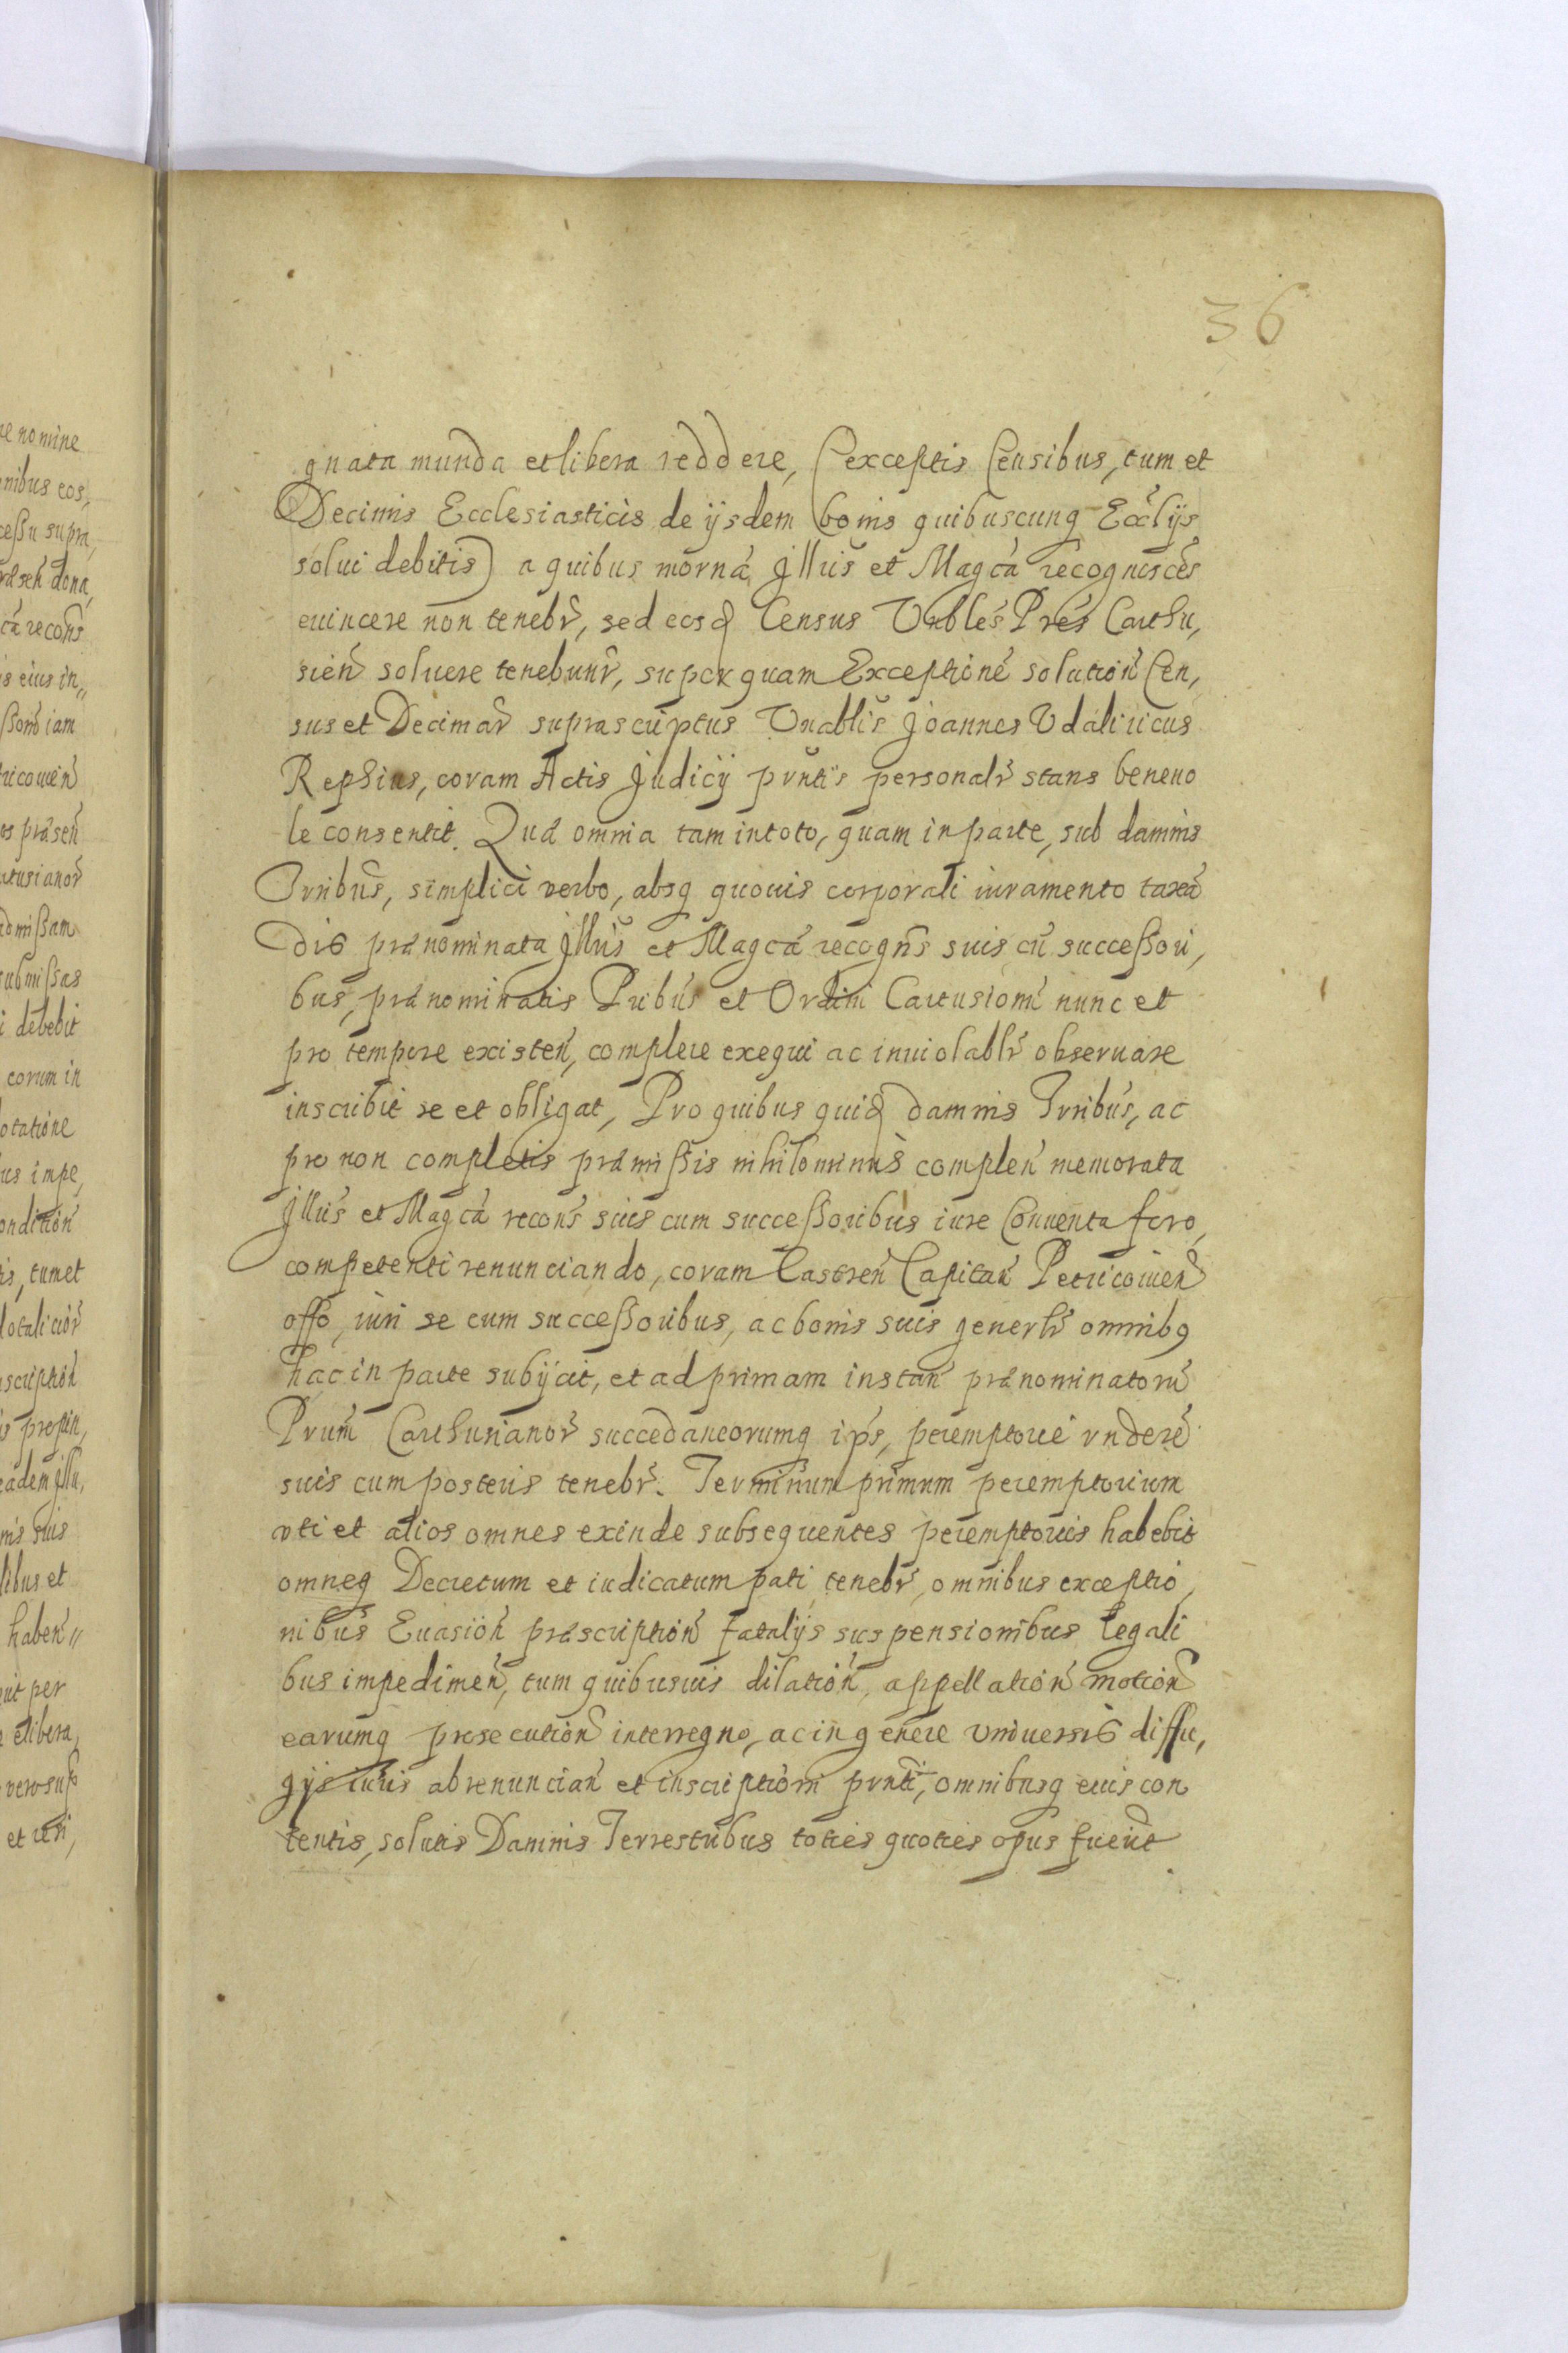 36
gnata munda et libera reddere, (exceptis Censibus, tum et
Decimis Ecclesiasticis de ijsdem bonis quibuscunq Eccl̃ijs
solui debitis) a quibus Illus̃ et Magcã recogniscẽs
euincere non tenebr̃, sed eosd Census Vnblẽs Prẽs Carthu,
sieñ soluere tenebunr̃, super quam Exceptionẽ solutioñ Cen,
sus et Decimar̃ suprascriptus Vnablĩs Joannes Vdalricus
Rephius, coram Actis Judicij pñtis personalr̃ stans beneuo
le consentit. Quæ omnia tam in toto, quam in parte, sub damnis
Trribus̃, simplici verbo, absq quouis corporali iuramento taxañ
dis prænominata Illus̃ et Magcã recogñs suis cũ successori,
bus, prænominatis Pribus̃ et Ordini Cartusiom̃ nunc et
pro tempore existeñ, complere exequi ac inuiolablr̃ obseruare
inscribit se et obligat, Pro quibus quid damnis Trribus̃, ac
pro non completis præmissis nihilominus compleñ memorata
Illus̃ et Magcã recoñs suis cum successoribus iure Conuenta foro,
competenti renunciando, coram Castreñ Capitañ Petricouieñ
offo, iuri se cum successoribus, ac bonis suis generlr̃ omnibq
hac in parte subijcit, et ad primam instañ prænominatorũ
Prum̃ Carthusianor̃ succedaneorumq ip̃s, peremptorie rñdere
suis cum posteris tenebr̃. Terminum primum peremptorium
vti et alios omnes exinde subsequentes peremptorios habebit
omneq Decretum et iudicatum pati tenebr̃, omnibus exceptio,
nibus Euasioñ præscriptioñ fatalijs suspensionibus legali
bus impedimeñ, tum quibusuis dilatioñ, appellatioñ motioñ
earumq prosecutioñ interregno, ac in genere vniuersis diffu,
gijs iuris abrenunciañ et inscriptioni pñti, omnibusq eius con
tentis, solutis Damnis Terrestribus toties quoties opus fuerit